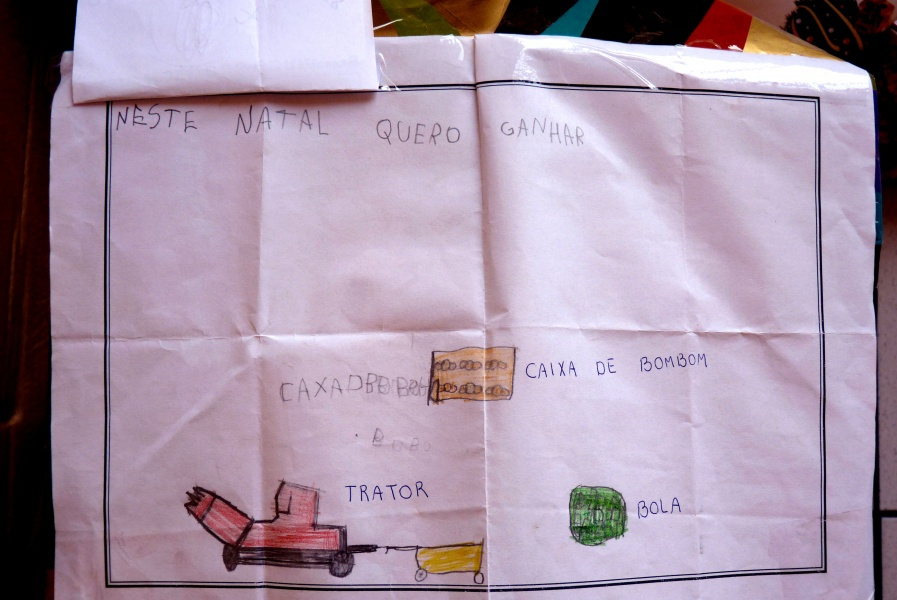 NESTE NATAL QUERO GANHAR
CAIXA DE BOMBOM
TRATOR
BOLA